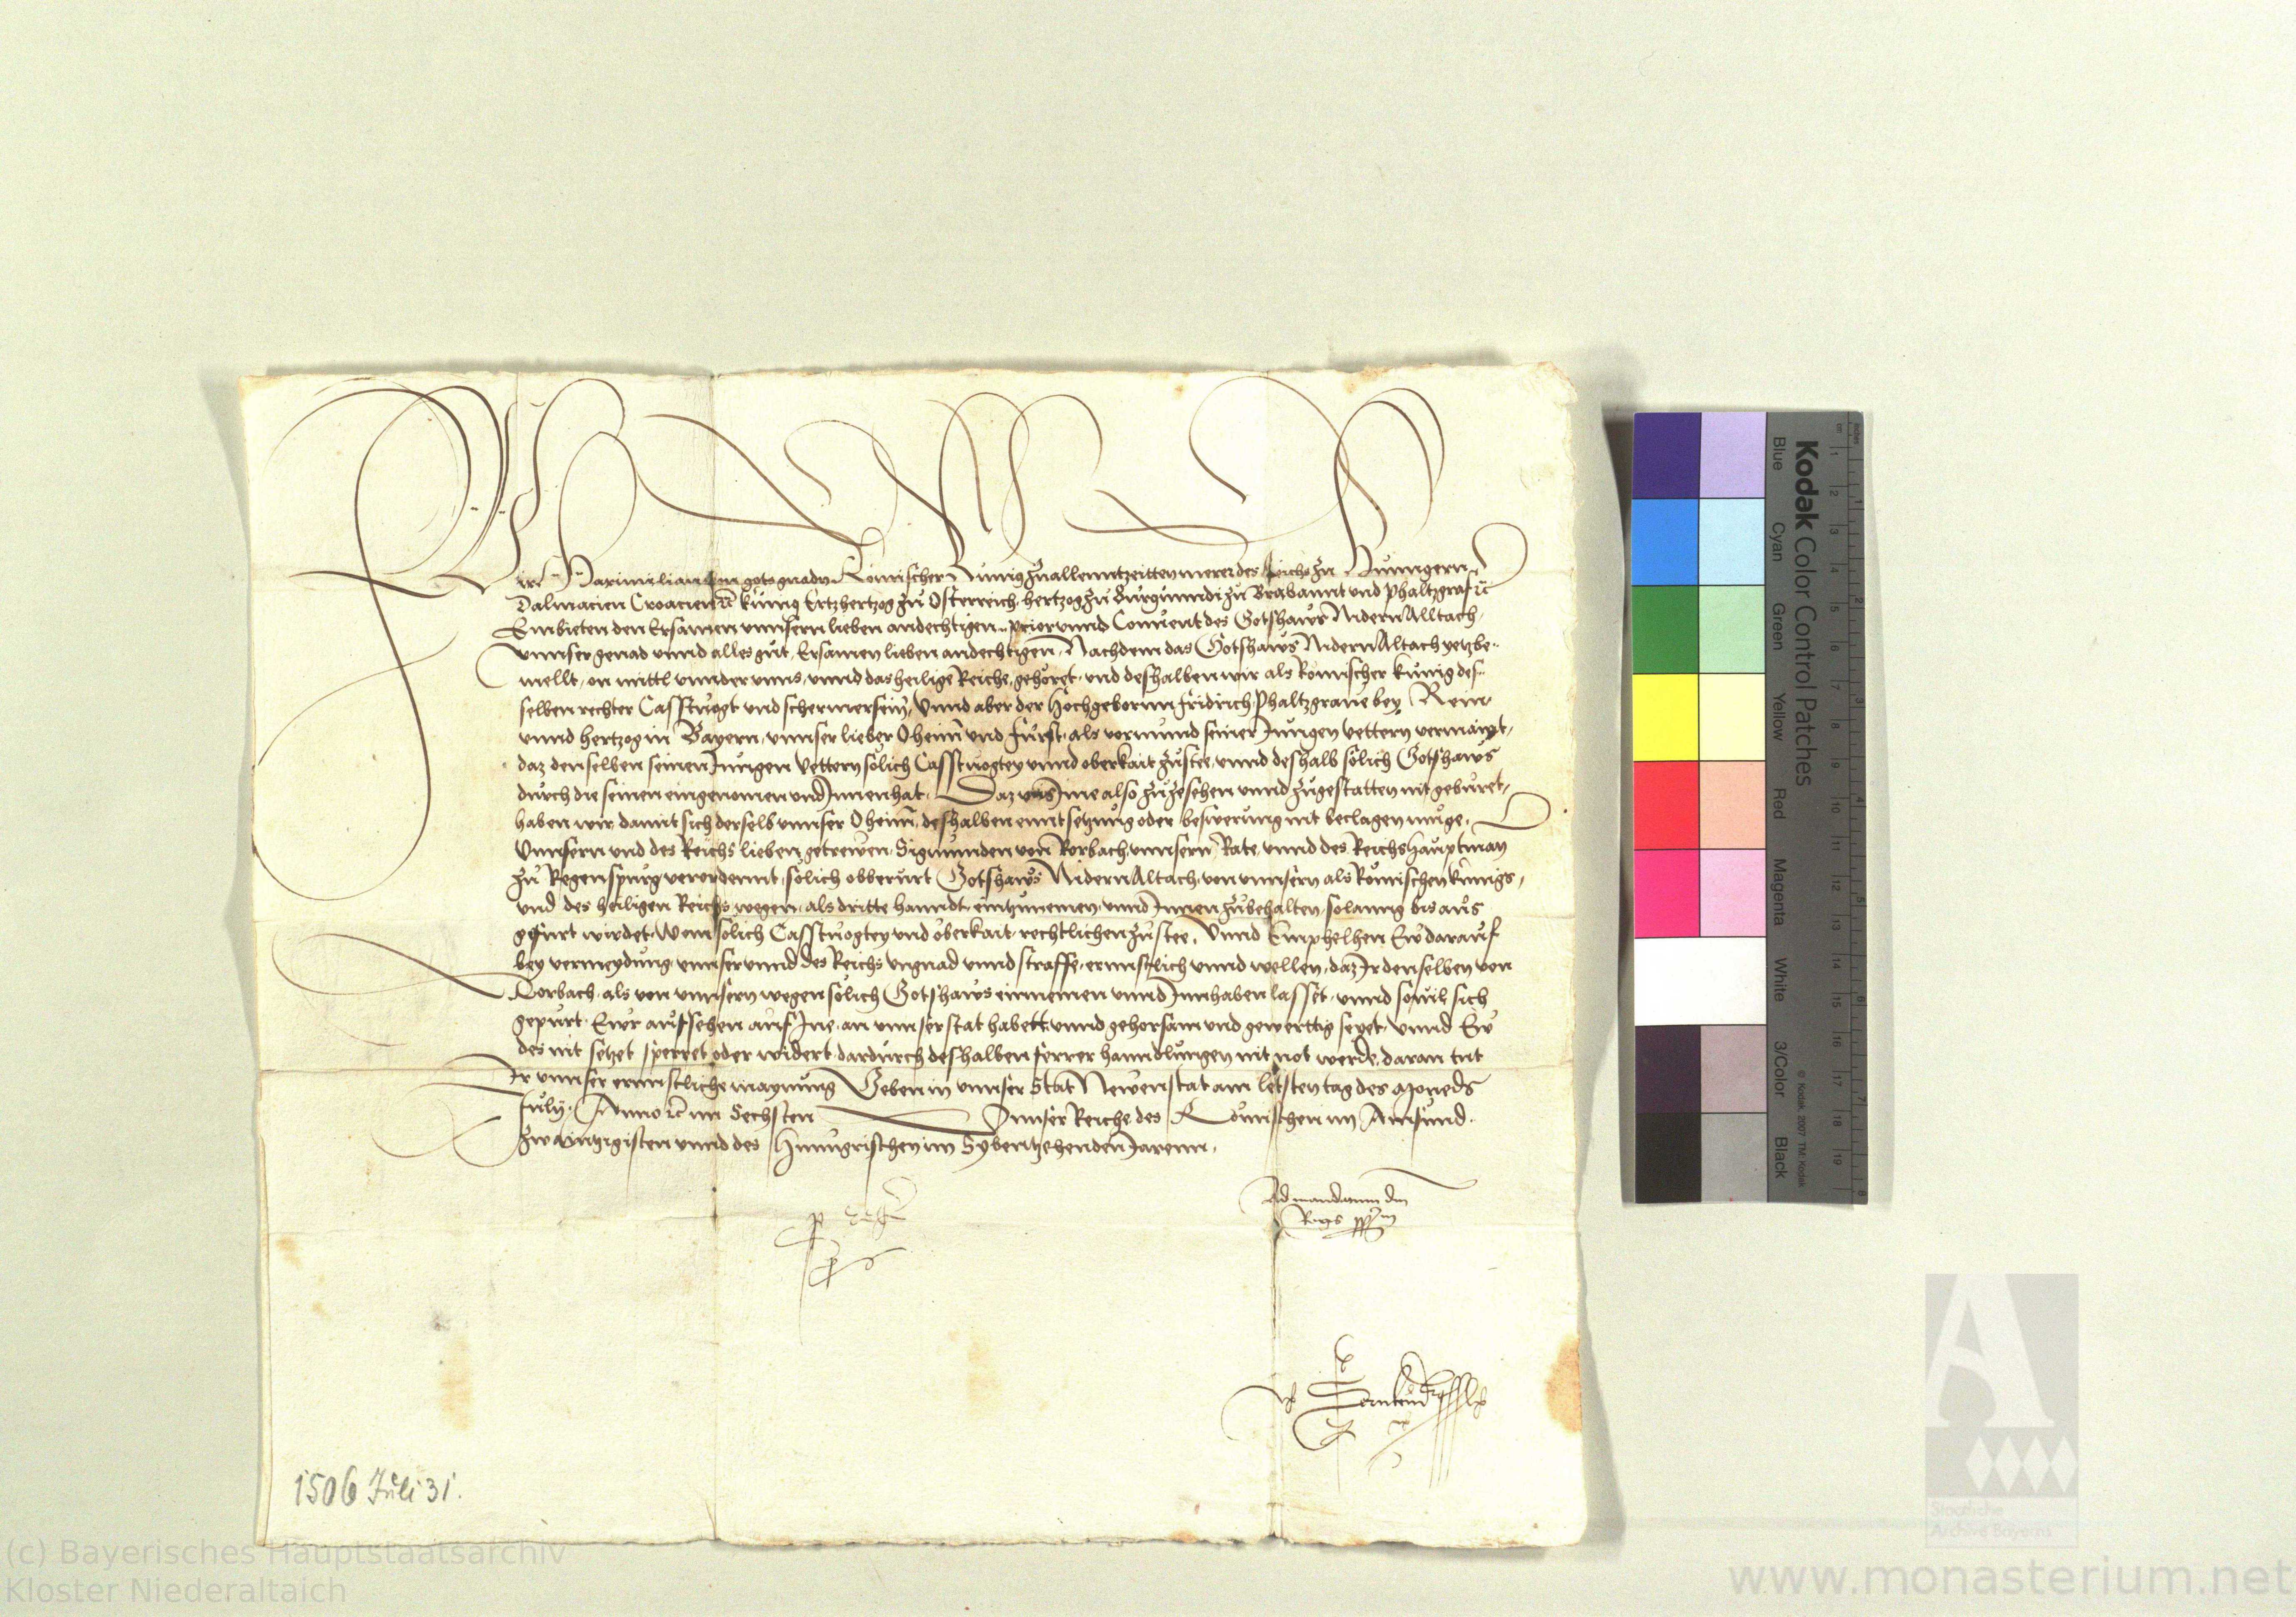 Wir Maximilian von gots gnaden Römischer Kunig zu allenntzeitten merer des Reichs zu Hunngern
Dalmacien Croacien ꝛc̃ kunig Ertzhertzog zu Osterreich hertzog zu Burgunndi zu Brabannt und phaltzgraf ꝛc̃
Embieten den Ersamen unnsern lieben andechtigen .. prior unnd Convent des Gotshaws Nidern Alltach,
unnser genad unnd alles gut, Ersamen lieben andechtigen, Nachdem das Gotshaws Nidern Altach yetzbe-
mellt, on mittl unnder unns, unnd das heilige Reiche, gehöret, und deshalben wir als Romischer kunig des-
selben rechter Casstvogt und schermer sein, Unnd aber der Hochgebornn Fridrich Phaltzgrave bey Rein
unnd hertzog in Bayern, unnser lieber Oheim und Fürst, als vormund seiner Jungen vettern vermaint,
daz denselben seinen Jungen Vettern solich Casstvogtey unnd oberkait zustee, unnd deshalb solich Gotshaws
durch die seinen eingenomen und Innen hat, Daz uns Ime also zuzesehen unnd zugestatten nit geburet,
haben wir, damit sich derselb unnser Oheim, deshalben enntsetzung oder beswerung nit beclagen muge,
Unnsern und des Reichs lieben getrewen Sigmunden von Rorbach, unnsern Rate, unnd des Reichs Hauptman
zu Regenspurg verordennt, solich obberurt Gotshaws Nidern Altach, von unnsern als Romischen kunigs,
und des heiligen Reichs wegen, als dritte hanndt, einzunemen, unnd Innen zubehalten, solanng bis aus
gefurt wirdet, Wem solich Casstvogtey und oberkait, rechtlichen zustee, Unnd Emphelhen Ew darauf
bey vermeydung unnser unnd des Reichs ungnad unnd straffe, ernnstlich unnd wellen, daz Ir denselben von
Rorbach, als von unnsern wegen solich Gotshaws einnemen unnd Innhaben lasset, unnd sovil sich
gepurt Ewr aufsehen auf Ine, an unnser stat habett, unnd gehorsam und gewerttig seyet, Unnd Ew
des nit setzet sperret oder widert dardurch deshalben ferrer hanndlungen nit not werde, daran tut
Ir unnser ernnstliche maynung Geben in unnser Stat Newenstat am letsten tag des Moneds
July, Anno ꝛc̃ im Sechsten Unnser Reiche des Römischen im Ainsund-
zwaintzigisten unnd des Hunngrischen im Sybentzehenden Jarenn,
p regem
p s
Ad mandatum dm
Regis pp̃m
1506 Juli 31.
Kodak Color Control Patches
Blue Cyan Green Yellow Red Magenta White 3/Color Black
© Kodak, 2007 TM: Kodak
Staatliche
Archive Bayerns
(c) Bayerisches Hauptstaatsarchiv
Kloster Niederaltaich
www.monasterium.net